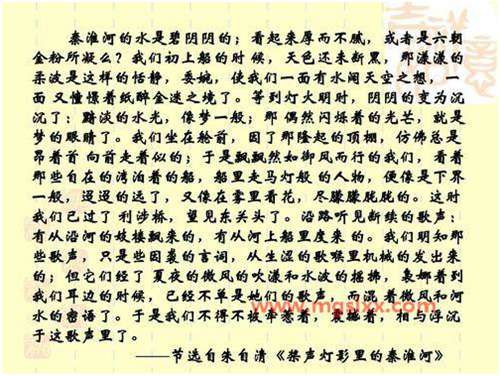 秦淮河的水是碧阴阴的；看起来厚而不腻，或者是六朝
金粉所凝么？我们初上船的时候，天色还未断黑，那漾漾的
柔波是这样的恬静，委婉，使我们一面有水阔天空之想，一
面 又憧憬着纸醉金迷之境了。等到灯火明时，阴阴的变为沉
沉了：黯淡的水光，像梦一般；那 偶然闪烁着的光芒，就是
梦的眼睛了。我们坐在舱前，因了那隆起的顶棚，仿佛总是
昂着首 向前走着似的；于是飘飘然如御风而行的我们，看着
那些自在的湾泊着的船，船里走马灯般 的人物，便像是下界
一般，迢迢的远了，又像在雾里看花，尽朦朦胧胧的。这时
我们已过了 利涉桥，望见东关头了。沿路听见断续的歌声：
有从沿河的妓楼飘来的，有从河上船里度来 的。我们明知那
些歌声，只是些因袭的言词，从生涩的歌喉里机械的发出来
的；但它们经了 夏夜的微风的吹漾和水波的摇拂，袅娜着到
我们耳边的时候，已经不单是她们的歌声，而混着微风和河
水的密语了。于是我们不得不被牵惹着，震撼着，相与浮沉
于这歌声里了。
www.mgslxx.com
——节选自朱自清《桨声灯影里的秦淮河》